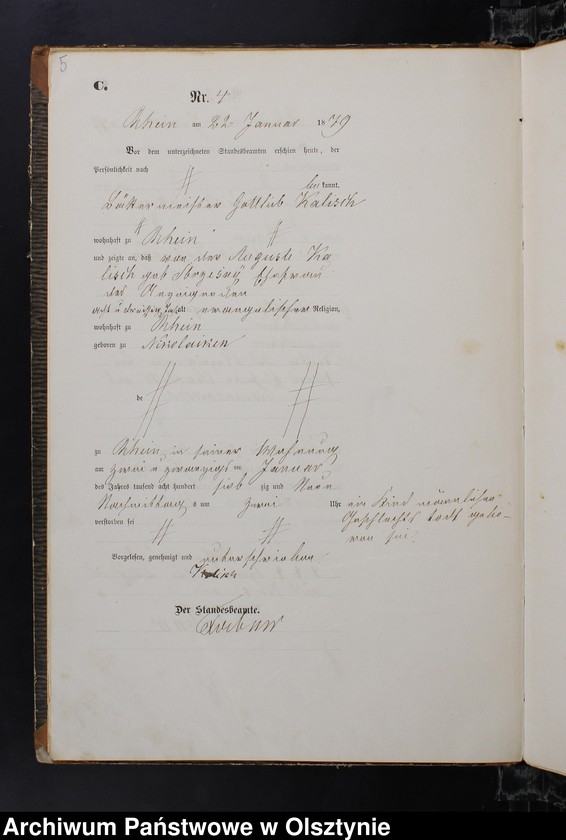 5
C.
Nr. 4
Rhein am 22 Januar 1879
Vor dem unterzeichneten Standesbeamten erschien heute, der
Persönlichkeit nach
be kannt,
Bäkermeister Gottlieb Kalisch
wohnhaft zu Rhein
und zeigte an, daß von der Auguste Ka
lisch geb Ehefrau
des Anzeigenden
acht u dreißig Jahr alt evangelischer Religion,
wohnhaft zu Rhein
geboren zu Nikolaiken
de
zu Rhein in seiner Wohnung
am zwei u zwanzigst en Januar
des Jahres tausend acht hundert sieb zig und Neun
Nachmittag s um zwei Uhr ein Kind männlichen
Geschlechts todt gebo-
ren sei.
verstorben sei
Vorgelesen, genehmigt und unterschrieben
Kalisch
Der Standesbeamte.
Archiwum Państwowe w Olsztynie